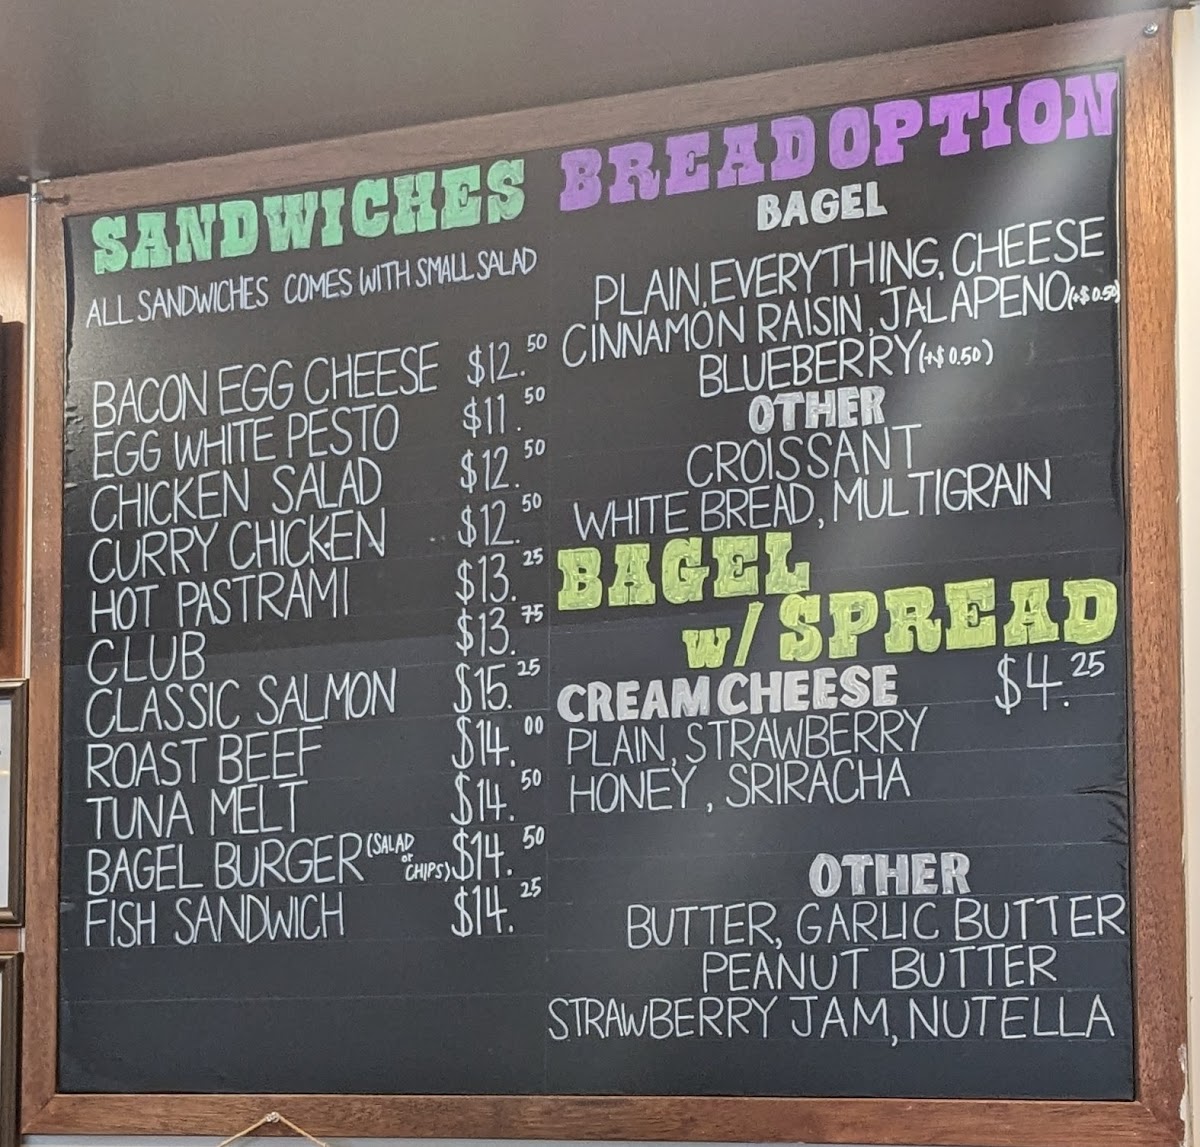 SANDWICHES
ALL SANDWICHES COMES WITH SMALL SALAD
BACON EGG CHEESE $12.50
EGG WHITE PESTO $11.50
CHICKEN SALAD $12.50
CURRY CHICKEN $12.50
HOT PASTRAMI $13.25
CLUB $13.75
CLASSIC SALMON $15.25
ROAST BEEF $14.00
TUNA MELT $14.50
BAGEL BURGER (SALAD or CHIPS) $14.50
FISH SANDWICH $14.25
BREAD OPTION
BAGEL
PLAIN, EVERYTHING, CHEESE
CINNAMON RAISIN, JALAPENO (+$0.50)
BLUEBERRY (+$0.50)
OTHER
CROISSANT
WHITE BREAD, MULTIGRAIN
BAGEL
w/ SPREAD
CREAM CHEESE $4.25
PLAIN, STRAWBERRY
HONEY, SRIRACHA
OTHER
BUTTER, GARLIC BUTTER
PEANUT BUTTER
STRAWBERRY JAM, NUTELLA